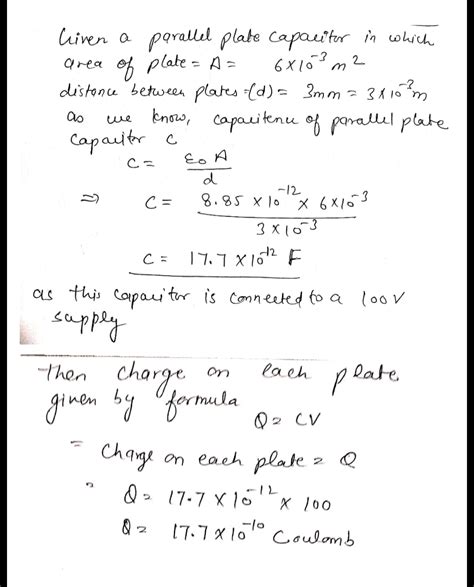 Given a parallel plate capacitor in which
area of plate = A = 6×10⁻³ m²
distance between plates = (d) = 3mm = 3×10⁻³m
as we know, capacitenu of parallel plate
capacitor C
C = ε₀ A / d
⇒ C = 8.85 × 10⁻¹² × 6×10⁻³ / 3×10⁻³
C = 17.7 ×10⁻¹² F
as this capacitor is connected to a 100V
supply
then charge on each plate
given by formula
Q = CV
= Charge on each plate = Q
" Q = 17.7 × 10⁻¹² × 100
Q = 17.7 × 10⁻¹⁰ Coulomb